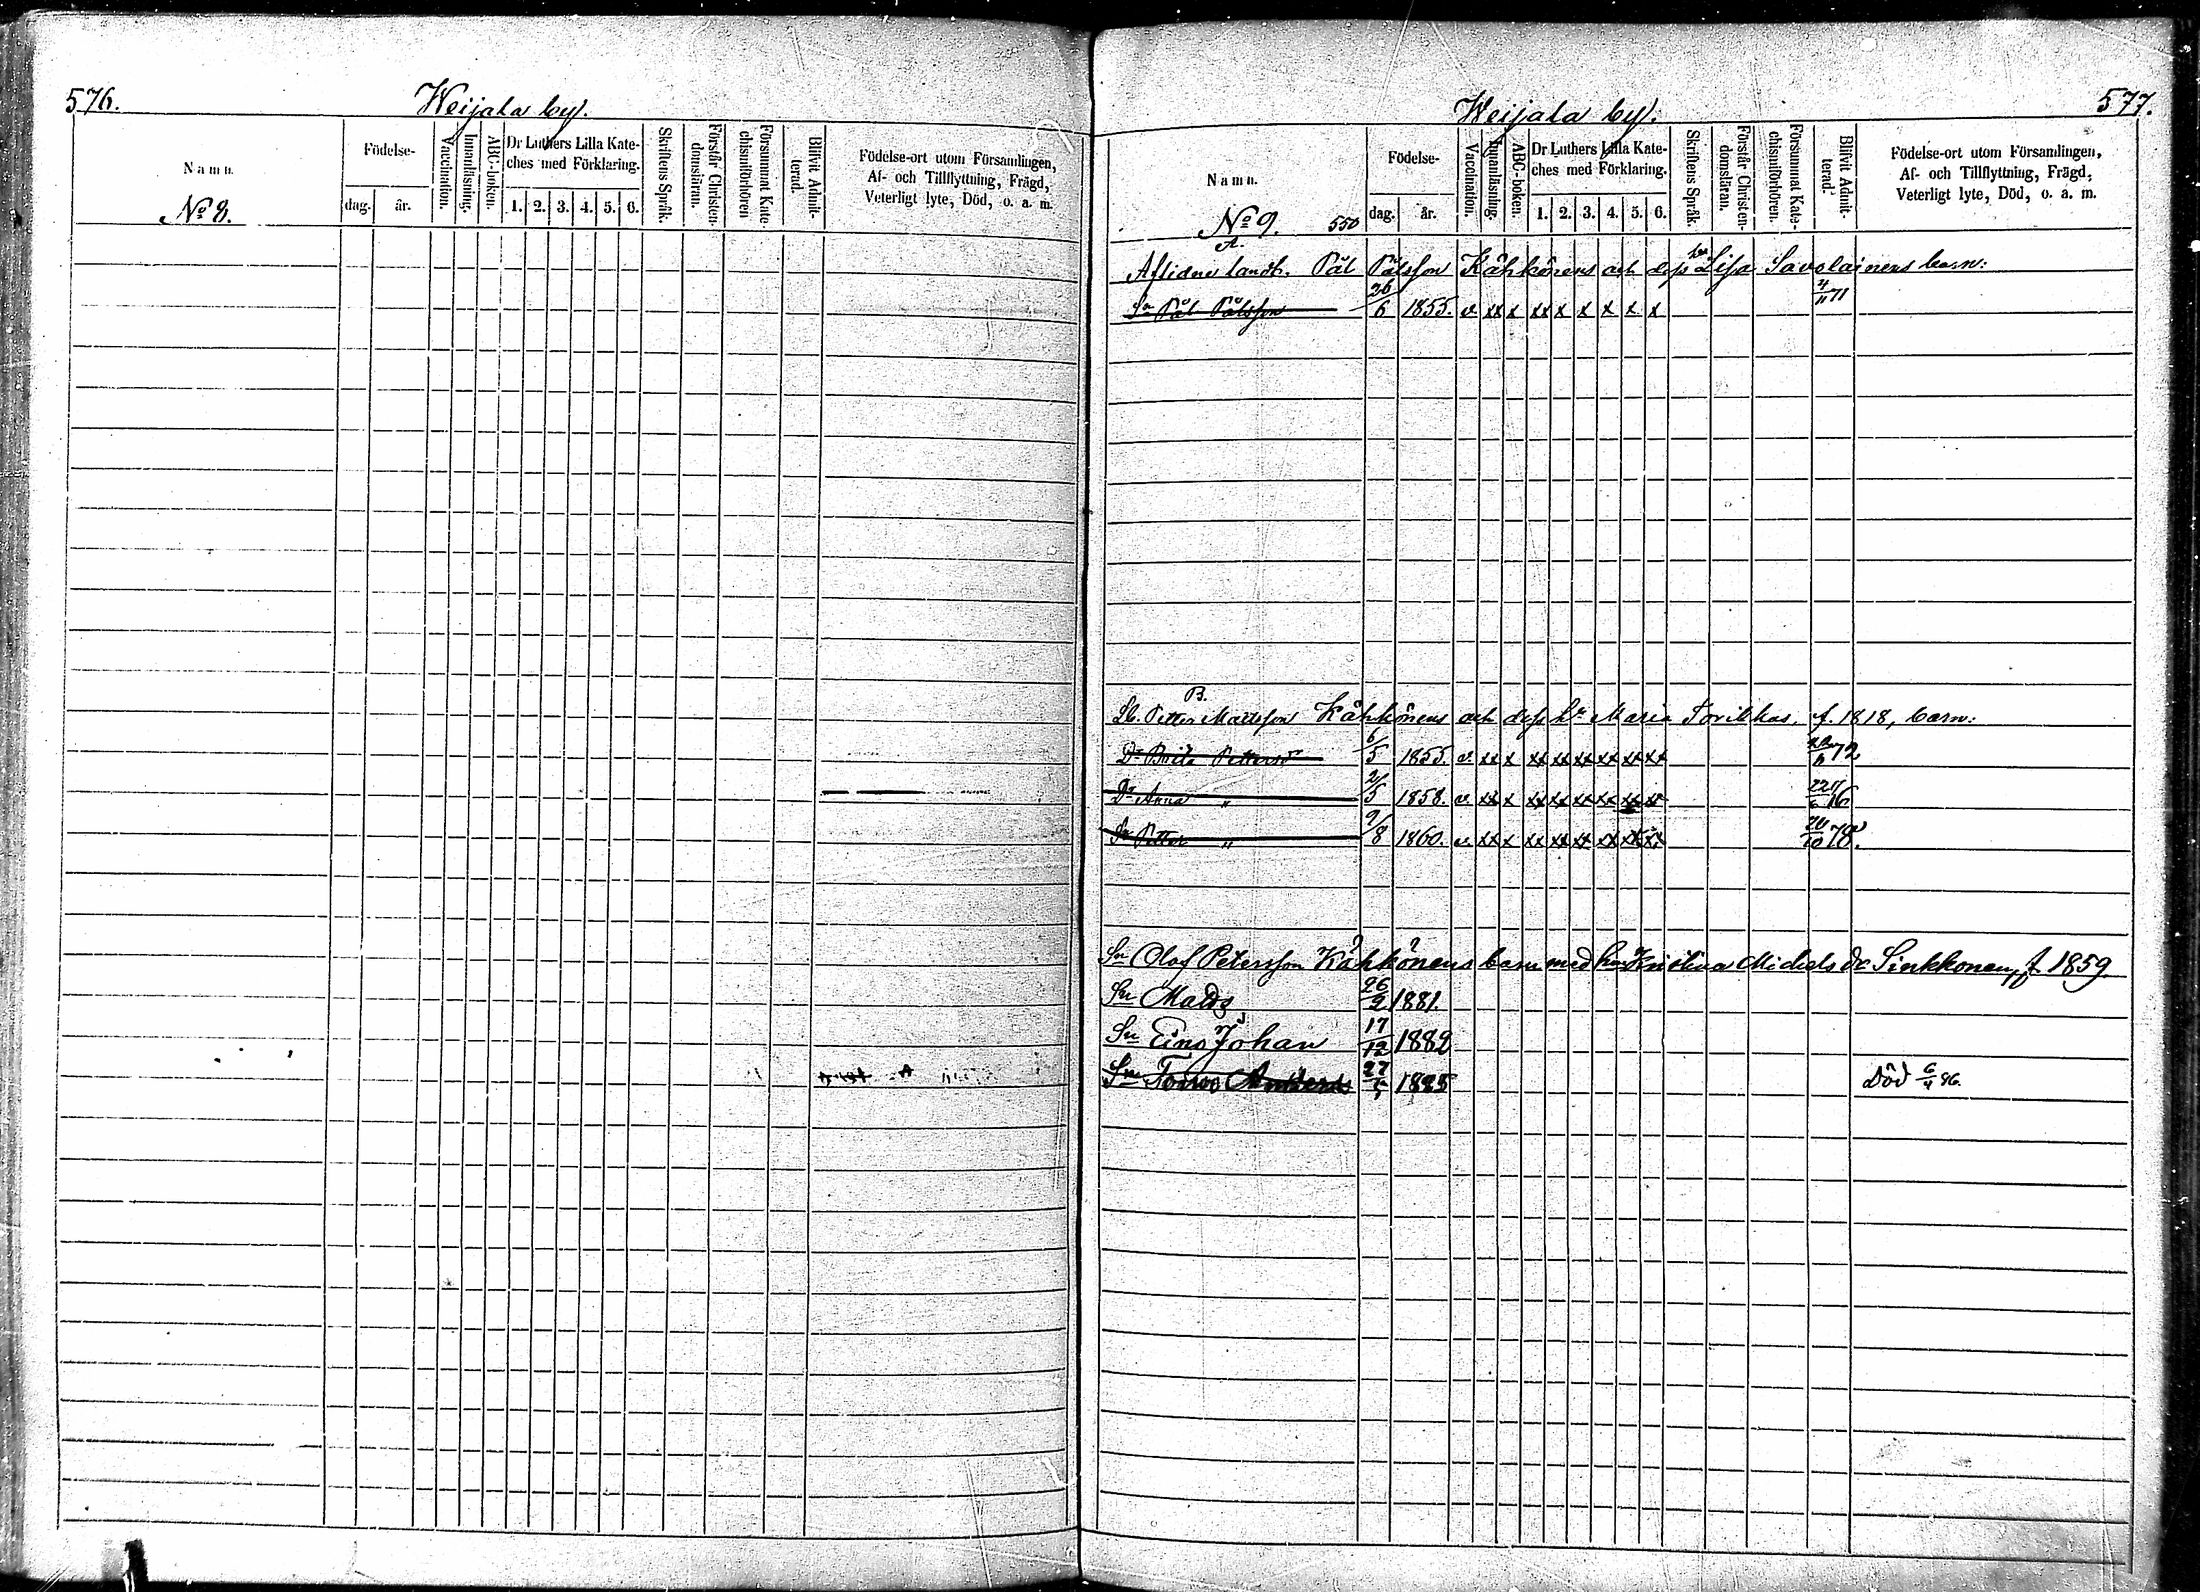 576.
Weijala by.
Namn.
Födelse-
dag. år.
Vaccination.
Innanläsning.
ABC-boken.
Dr Luthers Lilla Kate-
ches med Förklaring.
1. 2. 3. 4. 5. 6.
Skriftens Språk.
Förstår Christen-
domsläran.
Försummat Kate-
chisimförhören
Blifvit Admit-
terad.
Födelse-ort utom Församlingen,
Af- och Tillflyttning, Frägd,
Veterligt lyte, Död, o. a. m.
No 8.
577.
Weijala by.
Namn.
Födelse-
dag. år.
Vaccination.
Innanläsning.
ABC-boken.
Dr Luthers Lilla Kate-
ches med Förklaring.
1. 2. 3. 4. 5. 6.
Skriftens Språk.
Förstår Christen-
domsläran.
Försummat Kate-
chisimförhören.
Blifvit Admit-
terad.
Födelse-ort utom Församlingen,
Af- och Tillflyttning, Frägd,
Veterligt lyte, Död, o. a. m.
No 9. 550
A.
Aflidne landb. Pål Pålsson Kähkönens och dess hu Lisa Savolainens barn:
Sn Pål Pålsson 26/6 1855. v. xx x xx x x x x x 4/11 71
B.
Lb. Petter Mattsson Kähkönens och dess hu Maria Torikkas, f. 1818, barn:
Dr Brita Pettersdr 6/5 1855. v. xx x xx xx xx xx xx xx 72
Dr Anna " 2/5 1858. v. xx x xx xx xx xx xx xx
Sn Petter " 9/8 1860. v. xx x xx xx xx xx xx xx 78.
Sn Olof Petersson Kähkönens barn med hu Kristina Michels dr Sinkkonen, f 1859
Sn Matts 26/2 1881.
Sn Eino Johan 17/12 1882
Sn Toivo Anders 27/ 1885 Död 6/4 86.